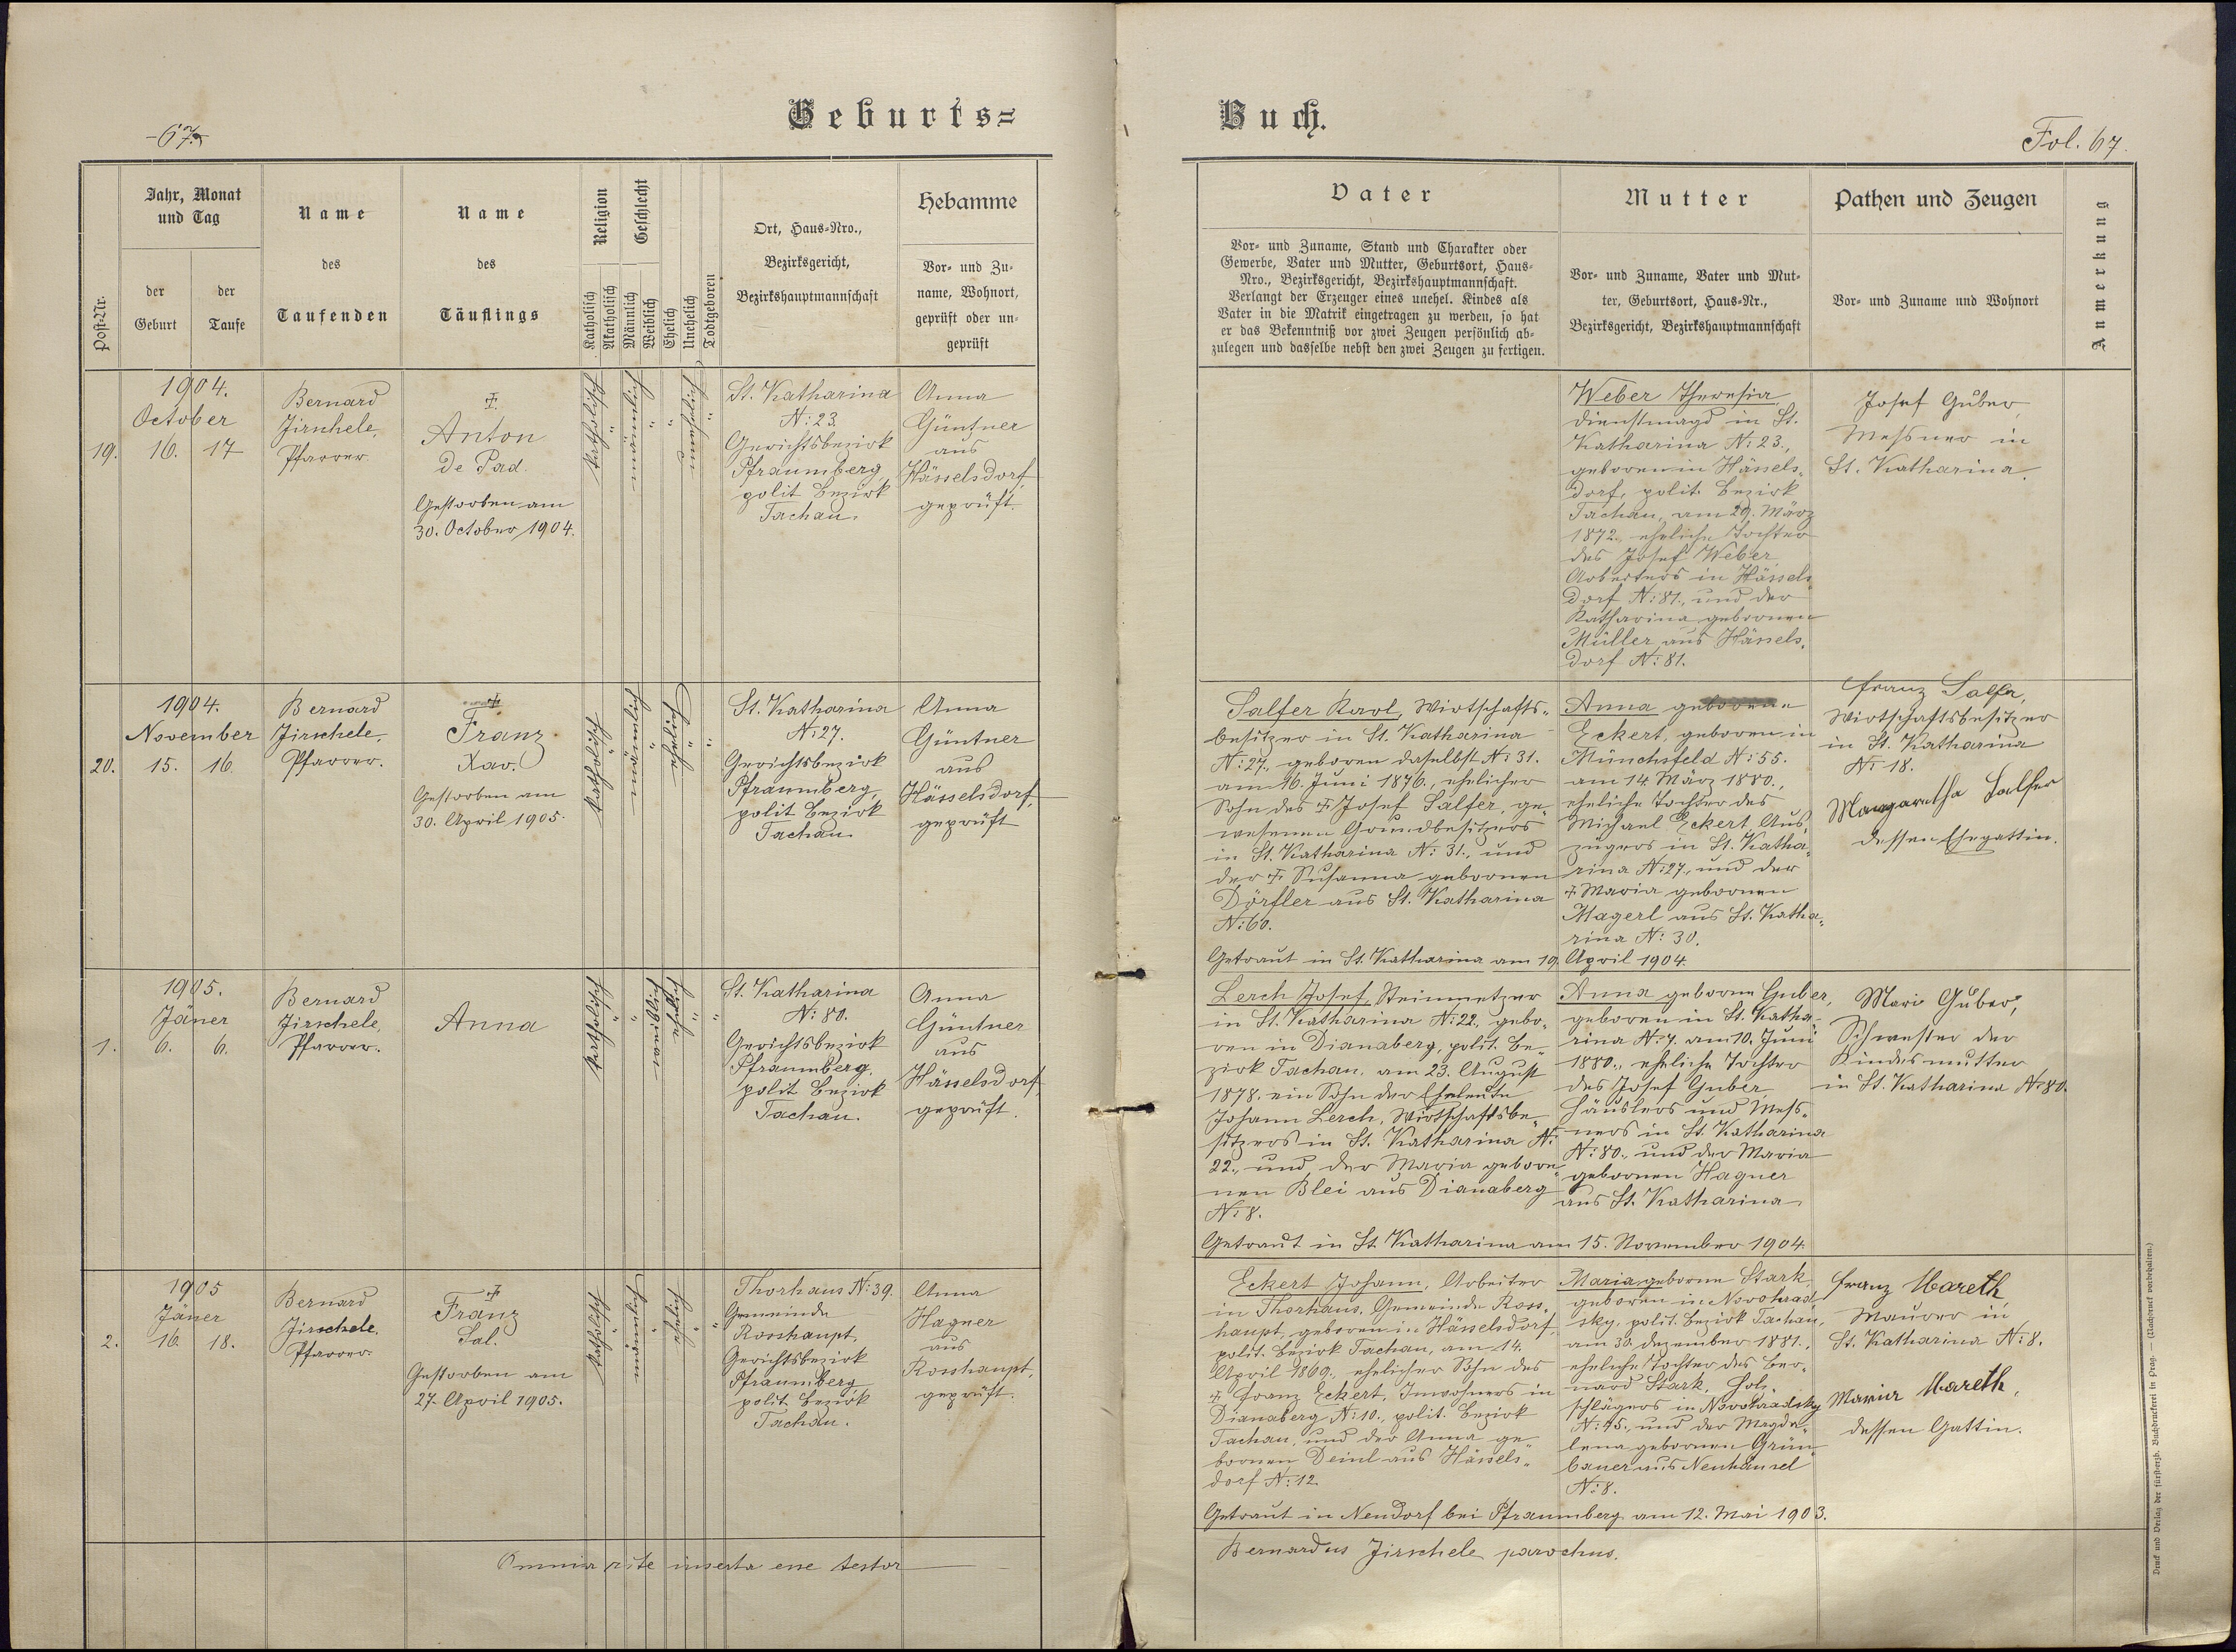 Geburts=
-67-
Jahr, Monat
und Tag
Name
Name
Religion
Geschlecht
Hebamme
Ort, Haus=Nro.,
Bezirksgericht,
Bezirkshauptmannschaft
Vor= und Zu=
name, Wohnort,
geprüft oder un=
geprüft
des
des
Post=Nr.
der
Geburt
der
Taufe
Taufenden
Täuflings
Katholisch
Akatholisch
Männlich
Weiblich
Ehelich
Unehelich
Todtgeboren
1904.
October
19. 16. 17
Bernard
Jirschele,
Pfarrer.
Anton
de Pad.
Gestorben am
30. October 1904.
katholisch
männlich
unehelich
St. Katharina
N: 23.
Gerichtsbezirk
Pfraumberg,
polit Bezirk
Tachau.
Anna
Güntner
aus
Hässelsdorf,
geprüft.
1904.
November
20. 15. 16.
Bernard
Jirschele,
Pfarrer.
Franz
Xav.
Gestorben am
30. April 1905.
katholisch
männlich
ehelich
St. Katharina
N: 27.
Gerichtsbezirk
Pfraumberg,
polit Bezirk
Tachau.
Anna
Güntner
aus
Hässelsdorf,
geprüft
1905.
Jäner
1. 6. 6.
Bernard
Jirschele,
Pfarrer.
Anna
katholisch
weiblich
ehelich
St. Katharina
N: 80.
Gerichtsbezirk
Pfraumberg,
polit Bezirk
Tachau.
Anna
Güntner
aus
Hässelsdorf,
geprüft.
1905
Jäner
2. 16. 18.
Bernard
Jirschele,
Pfarrer.
Franz
Sal.
Gestorben am
27. April 1905.
katholisch
männlich
ehelich
Thorhaus N: 39.
Gemeinde
Rosshaupt,
Gerichtsbezirk
Pfraumberg
polit. Bezirk
Tachau.
Anna
Hagner
aus
Rosshaupt,
geprüft.
Omnia rite inserta esse testor
Buch.
Fol. 67.
Vater
Vor= und Zuname, Stand und Charakter oder
Gewerbe, Vater und Mutter, Geburtsort, Haus=
Nro., Bezirksgericht, Bezirkshauptmannschaft.
Verlangt der Erzeuger eines unehel. Kindes als
Vater in die Matrik eingetragen zu werden, so hat
er das Bekenntniß vor zwei Zeugen persönlich ab=
zulegen und dasselbe nebst den zwei Zeugen zu fertigen.
Mutter
Vor= und Zuname, Vater und Mut=
ter, Geburtsort, Haus=Nr.,
Bezirksgericht, Bezirkshauptmannschaft
Pathen und Zeugen
Vor= und Zuname und Wohnort
Anmerkung
Weber Theresia,
Dienstmagd in St.
Katharina N: 23.,
geboren in Hässels=
dorf, polit. Bezirk
Tachau, am 29. März
1872., eheliche Tochter
des Josef Weber
Arbeiters in Hässels
dorf N: 81., und der
Katharina gebornen
Müller aus Hässels=
dorf N: 81.
Josef Guber,
Messner in
St. Katharina.
Salfer Karl, Wirtschafts=
besitzer in St. Katharina
N: 27., geboren daselbst N: 31.
am 16. Juni 1876., ehelicher
Sohn des + Josef Salfer, ge=
wesenen Grundbesitzers
in St. Katharina N: 31., und
der + Susanna gebornen
Dörfler aus St. Katharina
N: 60.
Anna geborene
Eckert, geboren in
Münchsfeld N: 55.
am 14. März 1880.,
eheliche Tochter des
Michael Eckert, Aus=
züglers in St. Katha=
rina N: 27., und der
+ Maria gebornen
Magerl aus St. Katha=
rina N: 30.
Franz Salfer,
Wirtschaftsbesitzer
in St. Katharina
N: 18.
Margaretha Salfer
dessen Ehegattin.
Getraut in St. Katharina am 19. April 1904.
Lerch Josef, Steinmetzer
in St. Katharina N: 22., gebo=
ren in Dianaberg, polit. Be=
zirk Tachau, am 23. August
1878. ein Sohn der Eheleute
Johann Lerch, Wirtschaftsbe=
sitzers in St. Katharina N:
22., und der Maria gebore=
nen Blei aus Dianaberg
N: 8.
Anna geborne Guber,
geboren in St. Katha=
rina N: 7. am 10. Juni
1880., eheliche Tochter
des Josef Guber,
Häuslers und Mess=
ners in St. Katharina
N: 80., und der Maria
gebornen Hagner
aus St. Katharina.
Mari Guber,
Schwester der
Kindesmutter
in St. Katharina N: 80.
Getraut in St. Katharina am 15. November 1904.
Eckert Johann, Arbeiter
in Thorhaus, Gemeinde Ross=
haupt, geboren in Hässelsdorf,
polit. Bezirk Tachau, am 14.
April 1869., ehelicher Sohn des
+ Franz Eckert, Inwohners in
Dianaberg N: 10., polit. Bezirk
Tachau, und der Anna ge=
bornen Deinl aus Hässels=
dorf N: 12.
Maria geborne Stark,
geboren in Novohrad
sky, polit. Bezirk Tachau,
am 30. Dezember 1881.,
eheliche Tochter des Ber=
nard Stark, Holz=
schlägers in Novohradsky
N: 45., und der Magda=
lena gebornen Grün=
bauer aus Neuhäusel
N: 8.
Franz Mareth
Maurer in
St. Katharina N: 8.
Maria Mareth,
dessen Gattin.
Getraut in Neudorf bei Pfraumberg am 12. Mai 1903.
Bernardus Jirschele parochus.
Druck und Verlag der fürsterzb. Buchdruckerei in Prag. — (Nachdruck vorbehalten.)